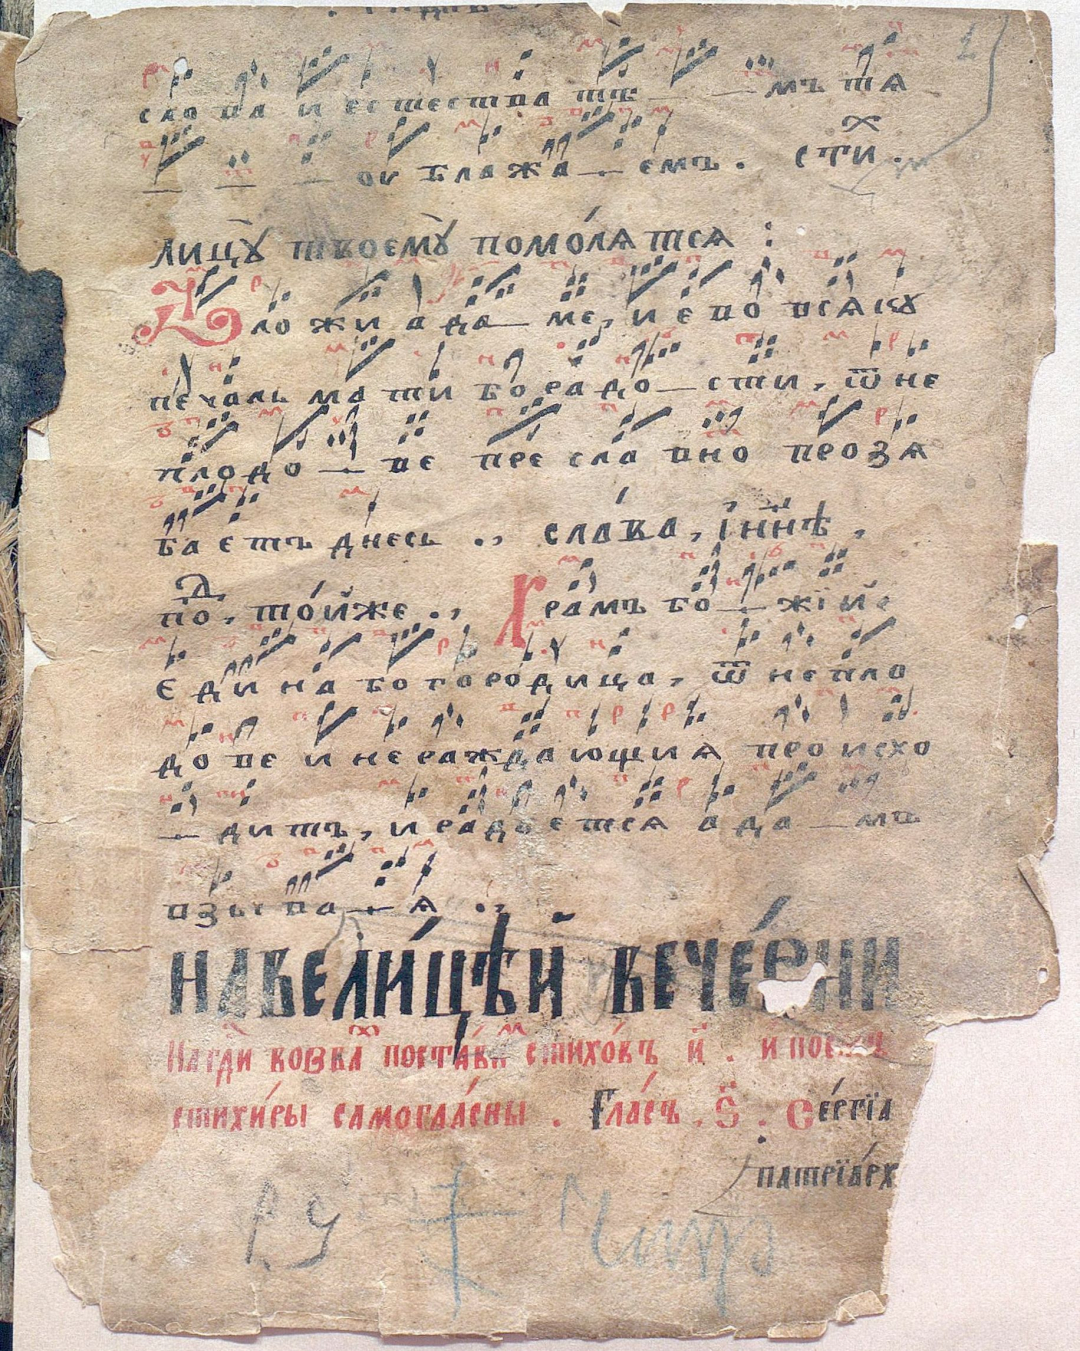 сло ва и естества тѣ — — мъ тѧ
— — — ои блажа — емъ . сти х .
лицꙋ твоемꙋ помо́лѧтсѧ :
ло жи ада — ме, и є во всѧкꙋ
печаль мати бо радо — сти , ѿ не
плодо — ве пре сла вно прозѧ
ба єтъ днесь ., сла́ва , і ны́нѣ ,
по д , то́йже ., Храмъ бо — жїй
Єдина богородица , ѿ непло
дове и нераждающиѧ происхо
— дитъ , и радꙋетсѧ ада — мъ
взы ва — ѧ .,
НАВЕЛИ́ЦѢЙ ВЕЧЕ́РНИ
На гд҇и воззвах поста́вим стихо́въ и҃ . и пое
стихи́ры самогла́сны . Гла́съ . ѕ҃ . Се́ргїа
патрїа́рх